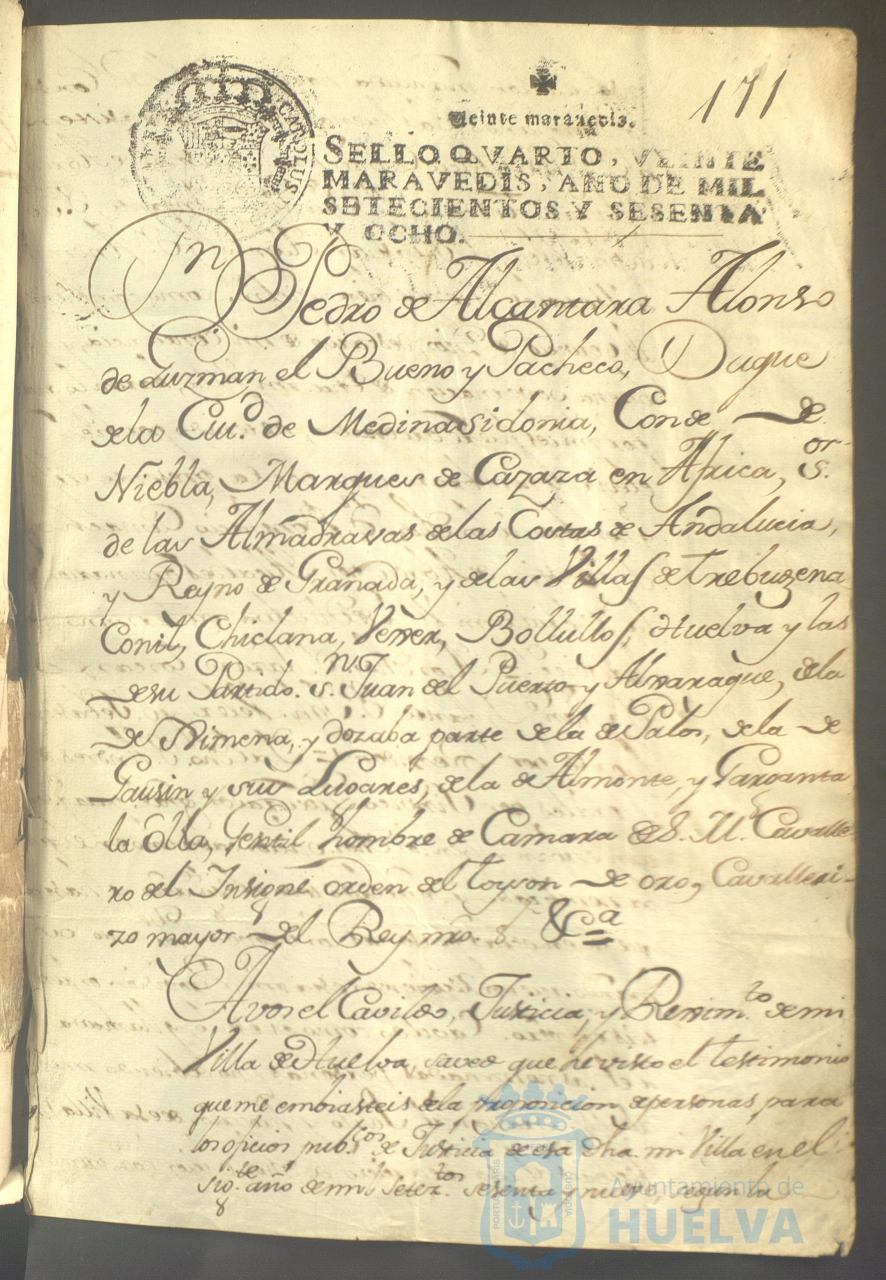 171
Veinte maravedis.
SELLO QVARTO, VEINTE
MARAVEDIS, AÑO DE MIL
SETECIENTOS Y SESENTA
Y OCHO.
CAROLUS
Dn Pedro de Alcantara Alonso
de Guzman el Bueno y Pacheco, Duque
de la Ciud. de Medina Sidonia, Conde de
Niebla, Marques de Cazaza en Africa, Sor.
de las Almadravas de las Costas de Andalucia,
y Reyno de Granada, y de las Villas de Trebugena
Conil, Chiclana, Verxer, Bollullos, Huelva y las
de su Partido. Sn. Juan del Puerto y Alxaraque, de la
de Ximena, y dozaba parte de la de Palos, de la de
Gausin y sus Lugares, de la de Almonte, y Garganta
la Olla, Gentil hombre de Camara de S. M. Cavalle-
ro del Insigne orden del toyson de oro, Cavalleri-
zo mayor del Rey nro. S. &Ca
A vos el Cavildo, Justicia, y Reximto. de mi
Villa de Huelva, saved que he visto el testimonio
que me embiasteis de la proposicion de personas para
los oficios pubcos. de Justicia de esa dha. mi Villa en el
sigte. año de mil seteztos. sesenta y nueve, segun la
PORTUS MARIS
Ayuntamiento de
HUELVA